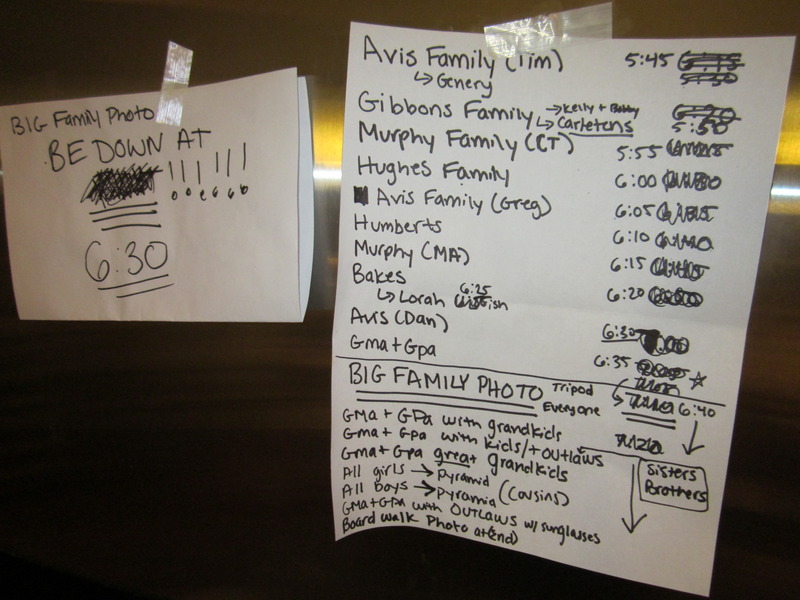 BIG Family Photo
BE DOWN AT
!!! !!!
6:30
Avis Family (Tim) 5:45
↳ Genery
Gibbons Family → Kelly + Bobby 5:50
↳ Carletens
Murphy Family (CT) 5:55
Hughes Family 6:00
Avis Family (Greg) 6:05
Humberts 6:10
Murphy (MA) 6:15
Bakes 6:20
↳ Lorah 6:25
Avis (Dan) 6:30
Gma + Gpa 6:35 ☆
BIG FAMILY PHOTO Tripod
Everyone → 6:40
GMa + GPa with grandkids
Gma + Gpa with kids/+outlaws
Gma + Gpa great grandkids
All girls → Pyramid
All boys → Pyramid (Cousins)
Sisters
Brothers
GMa + GPa with OUTLAWS w/ sunglasses
Board walk Photo at (end)